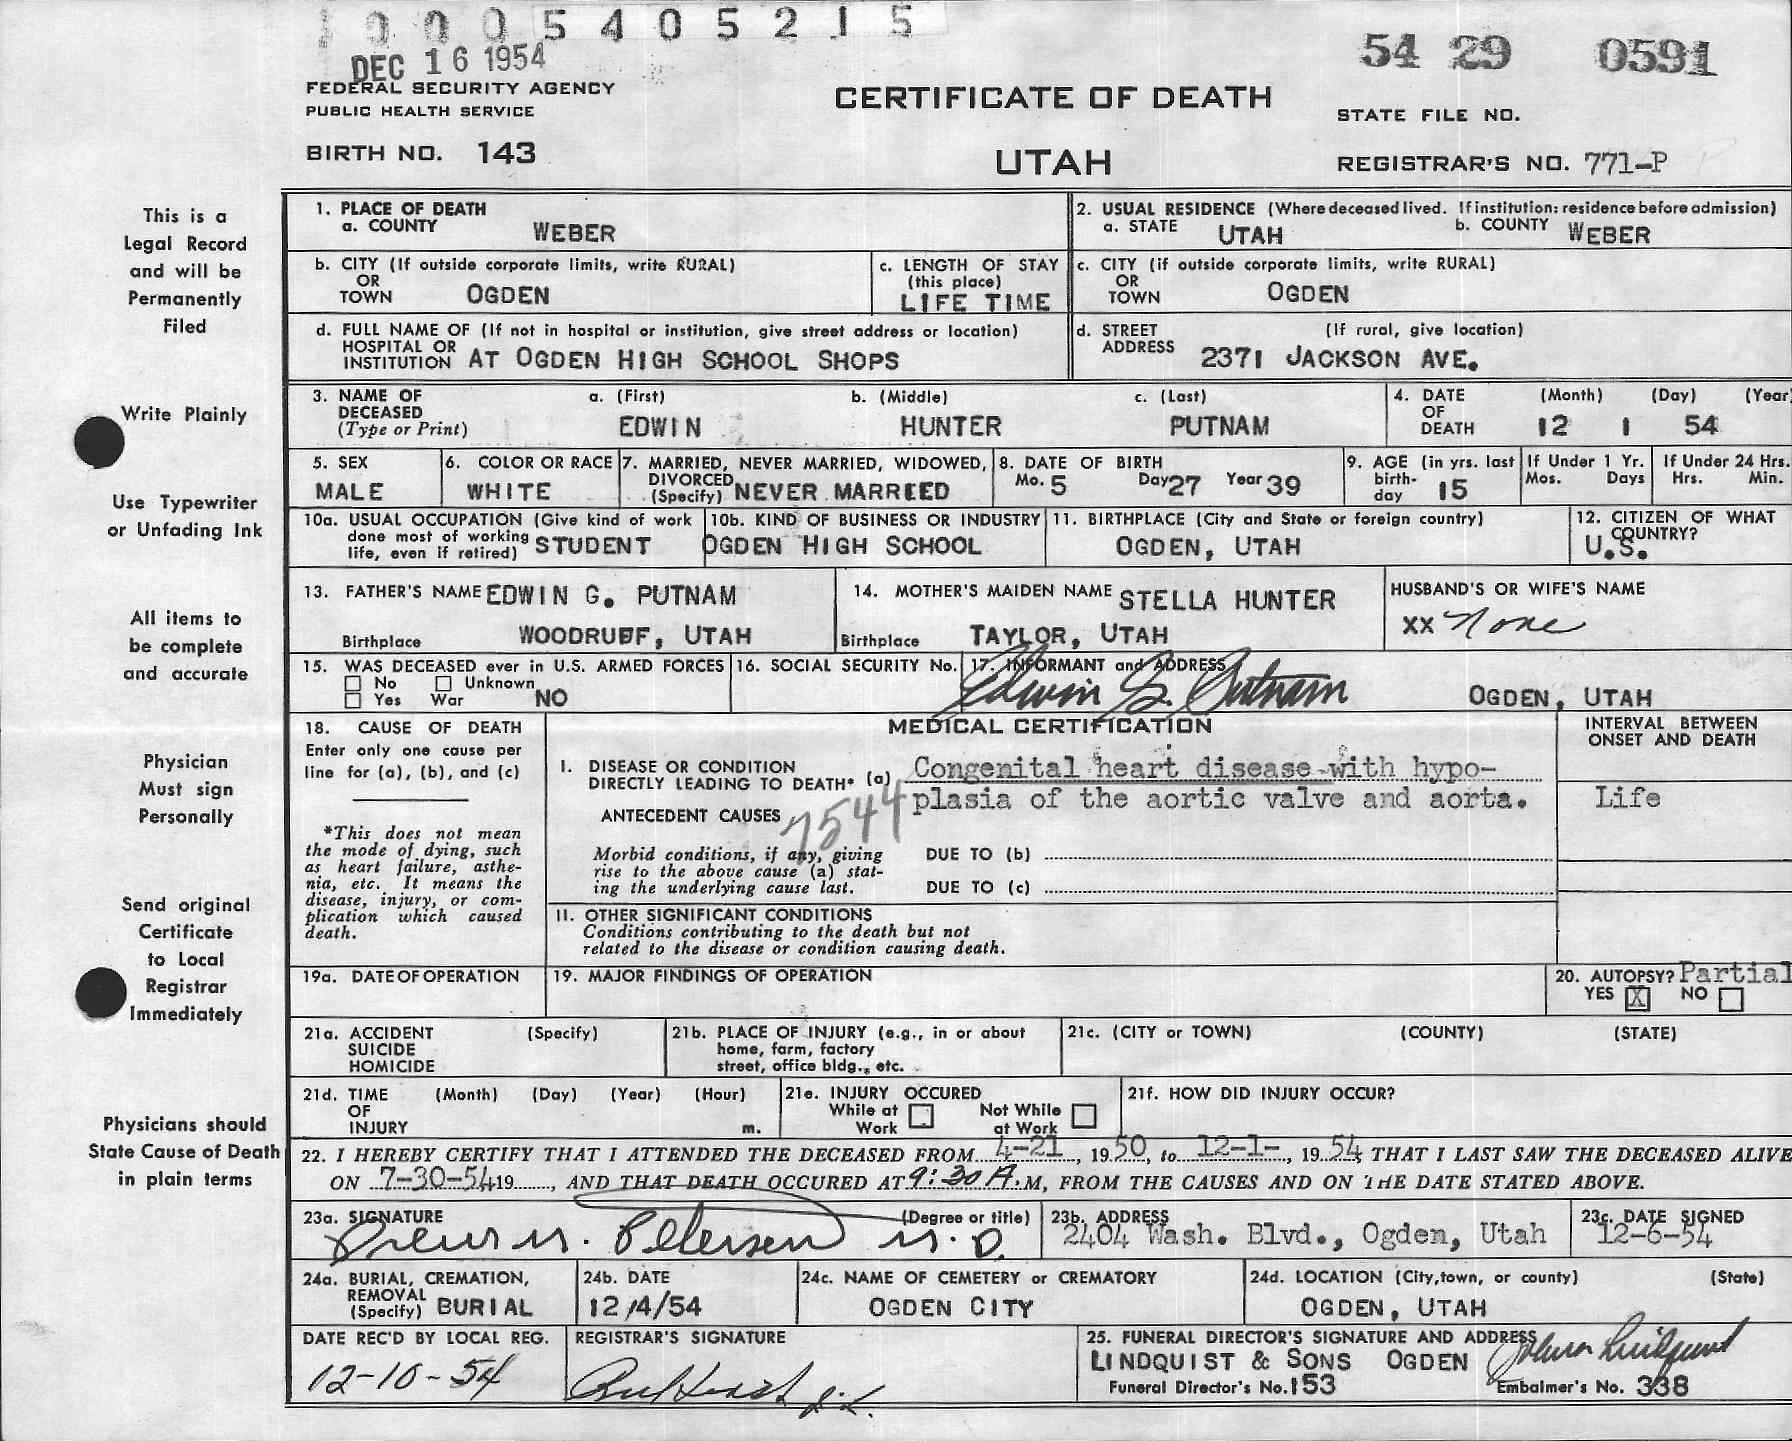 10005405215
DEC 16 1954
54 29 0591
FEDERAL SECURITY AGENCY
PUBLIC HEALTH SERVICE
CERTIFICATE OF DEATH
STATE FILE NO.
BIRTH NO. 143
UTAH
REGISTRAR'S NO. 771-P
This is a
Legal Record
and will be
Permanently
Filed
Write Plainly
Use Typewriter
or Unfading Ink
All items to
be complete
and accurate
Physician
Must sign
Personally
Send original
Certificate
to Local
Registrar
Immediately
Physicians should
State Cause of Death
in plain terms
1. PLACE OF DEATH
a. COUNTY WEBER
2. USUAL RESIDENCE (Where deceased lived. If institution: residence before admission)
a. STATE UTAH b. COUNTY WEBER
b. CITY (If outside corporate limits, write RURAL)
OR
TOWN OGDEN
c. LENGTH OF STAY
(this place)
LIFE TIME
c. CITY (if outside corporate limits, write RURAL)
OR
TOWN OGDEN
d. FULL NAME OF (If not in hospital or institution, give street address or location)
HOSPITAL OR
INSTITUTION AT OGDEN HIGH SCHOOL SHOPS
d. STREET (If rural, give location)
ADDRESS 2371 JACKSON AVE.
3. NAME OF a. (First) b. (Middle) c. (Last)
DECEASED
(Type or Print) EDWIN HUNTER PUTNAM
4. DATE (Month) (Day) (Year
OF
DEATH 12 1 54
5. SEX
MALE
6. COLOR OR RACE
WHITE
7. MARRIED, NEVER MARRIED, WIDOWED,
DIVORCED
(Specify) NEVER MARRIED
8. DATE OF BIRTH
Mo. 5 Day 27 Year 39
9. AGE (in yrs. last
birth-
day 15
If Under 1 Yr.
Mos. Days
If Under 24 Hrs.
Hrs. Min.
10a. USUAL OCCUPATION (Give kind of work
done most of working
life, even if retired) STUDENT
10b. KIND OF BUSINESS OR INDUSTRY
OGDEN HIGH SCHOOL
11. BIRTHPLACE (City and State or foreign country)
OGDEN, UTAH
12. CITIZEN OF WHAT
COUNTRY?
U.S.
13. FATHER'S NAME EDWIN G. PUTNAM
Birthplace WOODRUFF, UTAH
14. MOTHER'S MAIDEN NAME STELLA HUNTER
Birthplace TAYLOR, UTAH
HUSBAND'S OR WIFE'S NAME
XX None
15. WAS DECEASED ever in U.S. ARMED FORCES
No Unknown
Yes War NO
16. SOCIAL SECURITY No.
17. INFORMANT and ADDRESS
Edwin G. Putnam OGDEN, UTAH
18. CAUSE OF DEATH
Enter only one cause per
line for (a), (b), and (c)
*This does not mean
the mode of dying, such
as heart failure, asthe-
nia, etc. It means the
disease, injury, or com-
plication which caused
death.
MEDICAL CERTIFICATION
INTERVAL BETWEEN
ONSET AND DEATH
I. DISEASE OR CONDITION
DIRECTLY LEADING TO DEATH* (a) Congenital heart disease with hypo-
plasia of the aortic valve and aorta. Life
ANTECEDENT CAUSES 7544
Morbid conditions, if any, giving
rise to the above cause (a) stat-
ing the underlying cause last.
DUE TO (b)
DUE TO (c)
II. OTHER SIGNIFICANT CONDITIONS
Conditions contributing to the death but not
related to the disease or condition causing death.
19a. DATE OF OPERATION
19. MAJOR FINDINGS OF OPERATION
20. AUTOPSY? Partial
YES X NO
21a. ACCIDENT (Specify)
SUICIDE
HOMICIDE
21b. PLACE OF INJURY (e.g., in or about
home, farm, factory
street, office bldg., etc.
21c. (CITY or TOWN) (COUNTY) (STATE)
21d. TIME (Month) (Day) (Year) (Hour)
OF
INJURY m.
21e. INJURY OCCURED
While at Not While
Work at Work
21f. HOW DID INJURY OCCUR?
22. I HEREBY CERTIFY THAT I ATTENDED THE DECEASED FROM 4-21, 19 50, to 12-1-, 19 54, THAT I LAST SAW THE DECEASED ALIVE
ON 7-30-54 19......, AND THAT DEATH OCCURED AT 9:30 A.M, FROM THE CAUSES AND ON THE DATE STATED ABOVE.
23a. SIGNATURE (Degree or title)
M. Petersen M.D.
23b. ADDRESS
2404 Wash. Blvd., Ogden, Utah
23c. DATE SIGNED
12-6-54
24a. BURIAL, CREMATION,
REMOVAL
(Specify) BURIAL
24b. DATE
12/4/54
24c. NAME OF CEMETERY or CREMATORY
OGDEN CITY
24d. LOCATION (City, town, or county) (State)
OGDEN, UTAH
DATE REC'D BY LOCAL REG.
12-10-54
REGISTRAR'S SIGNATURE
25. FUNERAL DIRECTOR'S SIGNATURE AND ADDRESS
LINDQUIST & SONS OGDEN Lindquist
Funeral Director's No. 153 Embalmer's No. 338